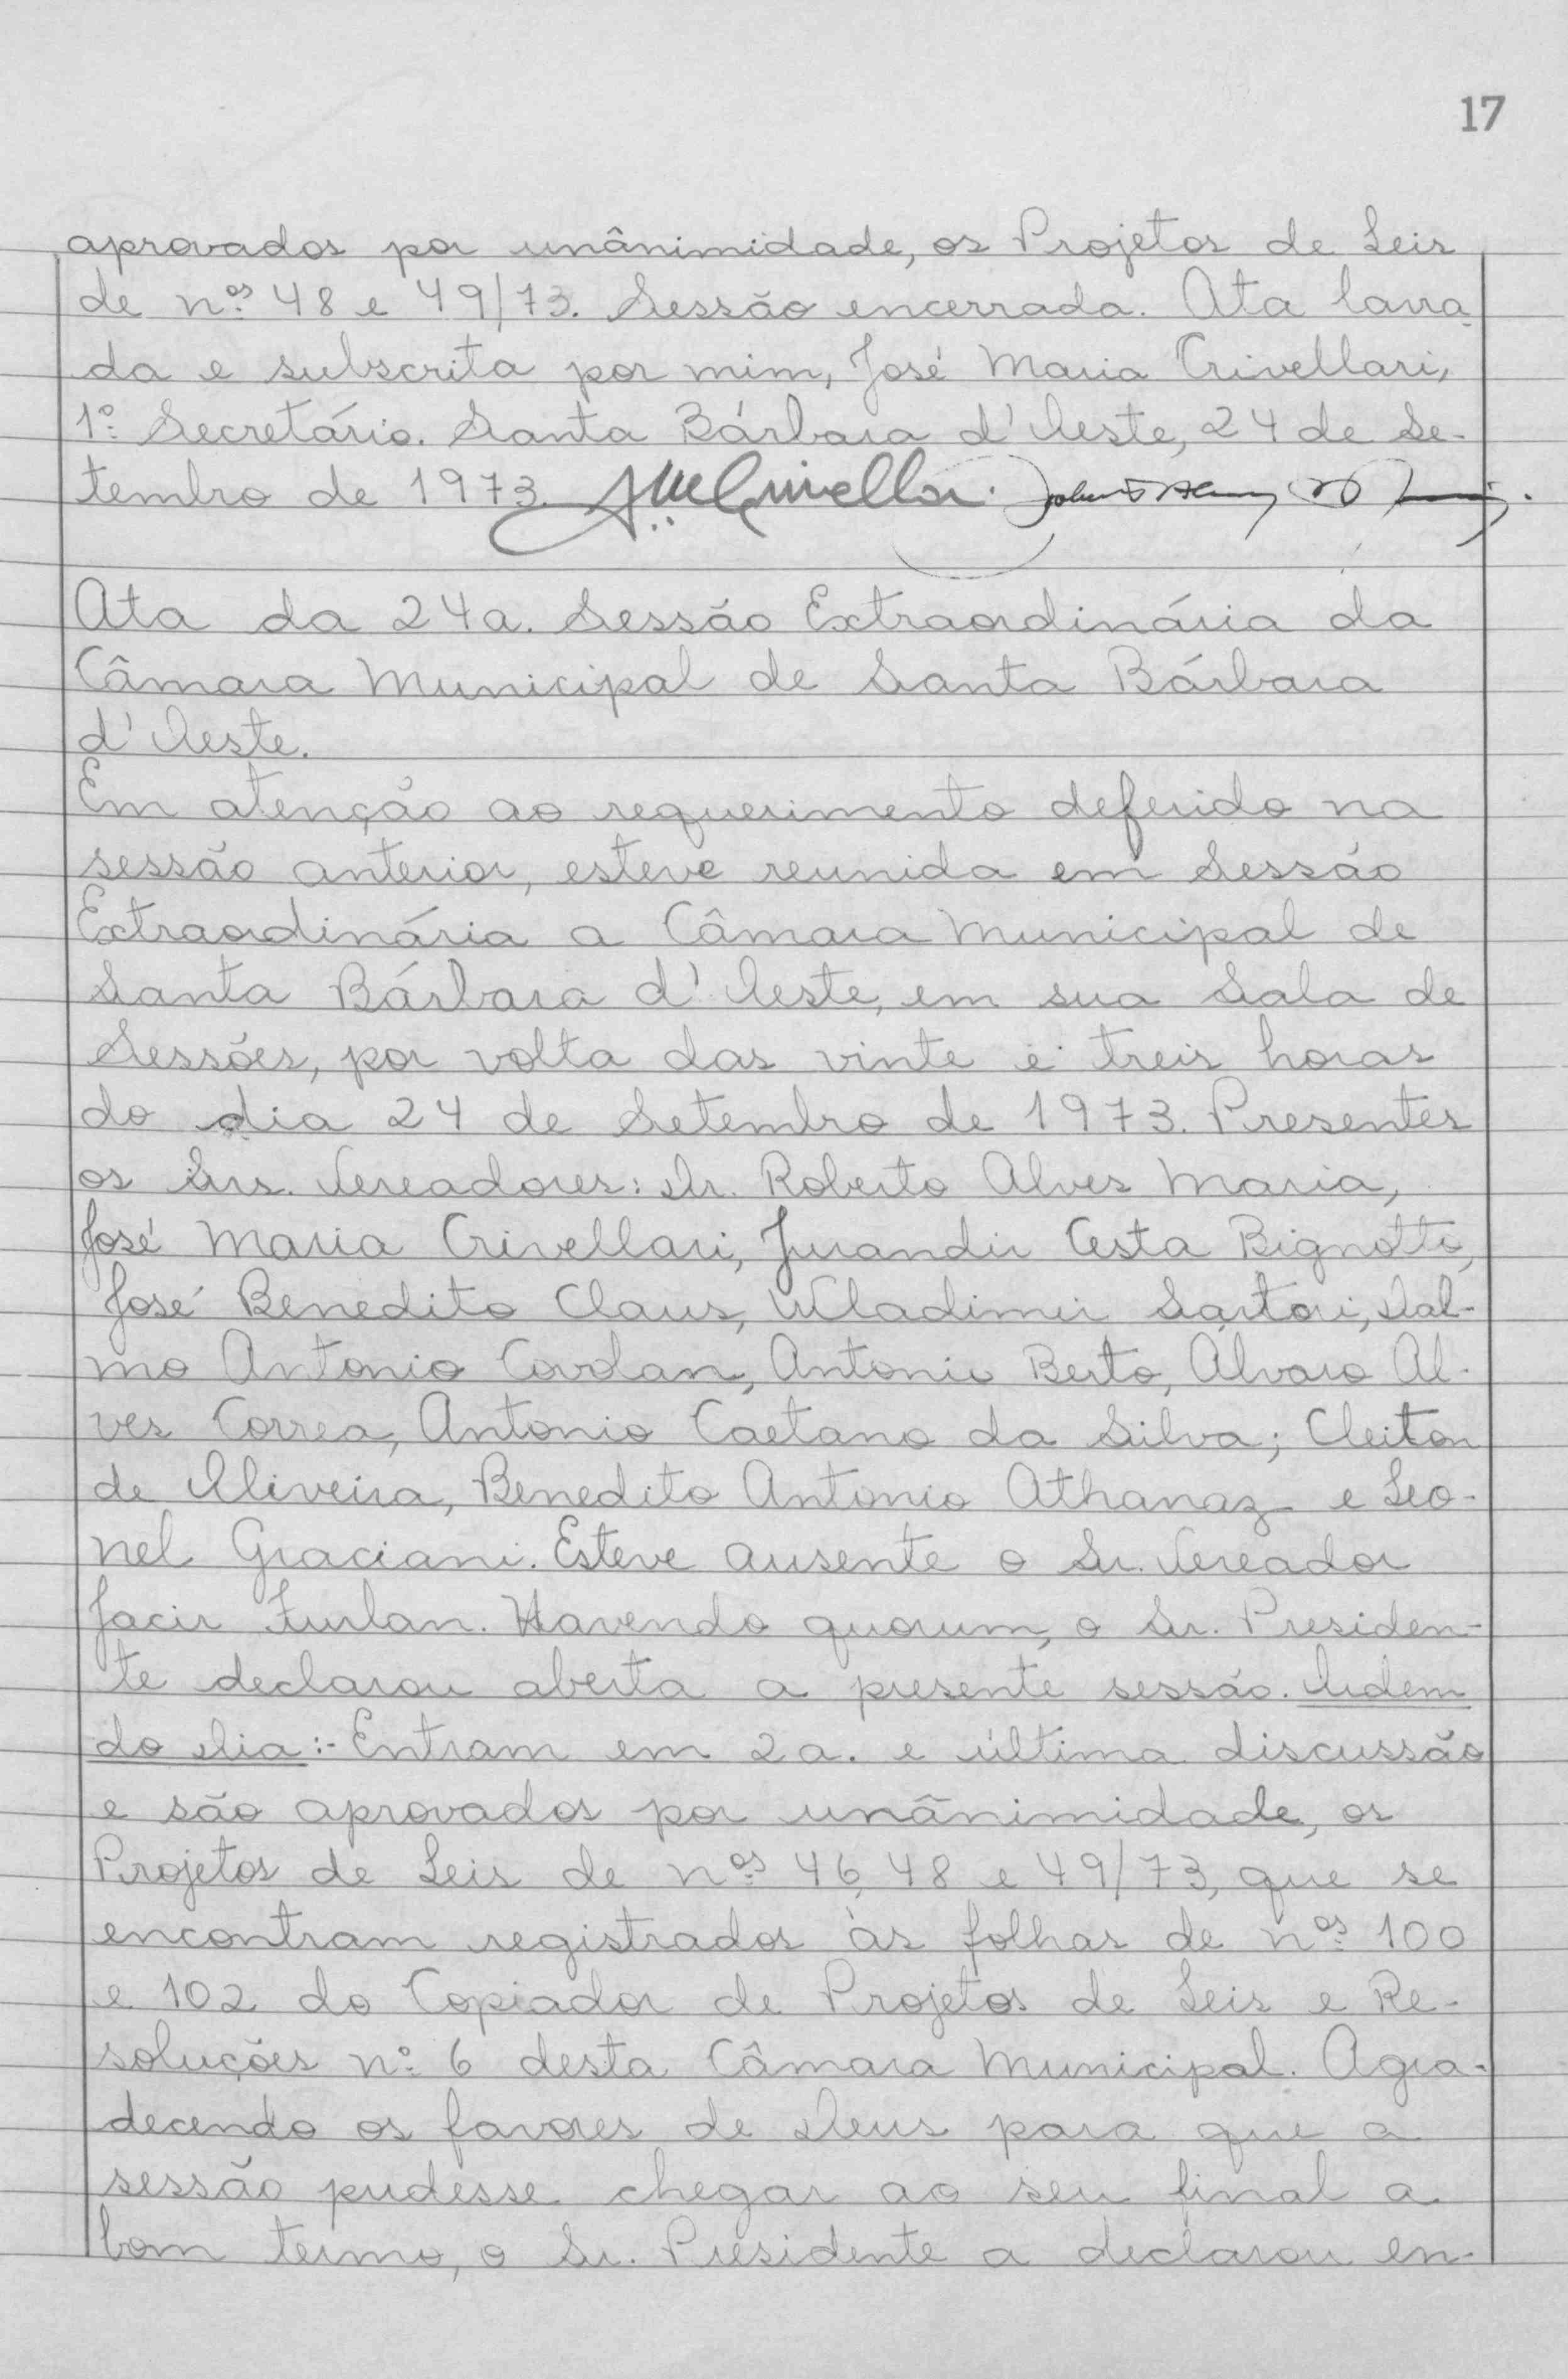 17
aprovados por unânimidade, os Projetos de Leis
de nºs 48 e 49/73. Sessão encerrada. Ata lavra-
da e subscrita por mim, José Maria Crivellari,
1º Secretário. Santa Bárbara d'Oeste, 24 de Se-
tembro de 1973.
Ata da 24a. Sessão Extraordinária da
Câmara Municipal de Santa Bárbara
d'Oeste.
Em atenção ao requerimento deferido na
sessão anterior, esteve reunida em Sessão
Extraordinária a Câmara Municipal de
Santa Bárbara d'Oeste, em sua Sala de
Sessões, por volta das vinte e treis horas
do dia 24 de Setembro de 1973. Presentes
os Srs. Vereadores: Dr. Roberto Alves Maria,
José Maria Crivellari, Jurandir Cesta Bignotto,
José Benedito Claus, Wladimir Sartori, Dal-
mo Antonio Covolan, Antonio Berto, Alvaro Al-
ves Correa, Antonio Caetano da Silva; Cleiton
de Oliveira, Benedito Antonio Athanaz e Leo-
nel Graciani. Esteve ausente o Sr. Vereador
Jacir Furlan. Havendo quorum, o Sr. Presiden-
te declarou aberta a presente sessão. Ordem
do Dia:- Entram em 2a. e última discussão
e são aprovados por unânimidade, os
Projetos de Leis de nºs 46, 48 e 49/73, que se
encontram registrados às folhas de nºs 100
e 102 do Copiador de Projetos de Leis e Re-
soluções nº 6 desta Câmara Municipal. Agra-
decendo os favores de Deus para que a
sessão pudesse chegar ao seu final a
bom termo, o Sr. Presidente a declarou en-